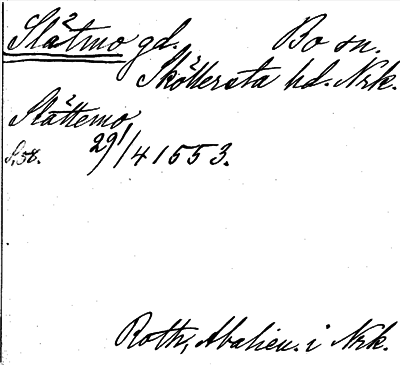 Slåtmo gd. Bo sn.
Sköllersta hd. Nrk.
Slåttemo
S. 58. 29/4 1553.
Roth, Abalien. i Nrk.